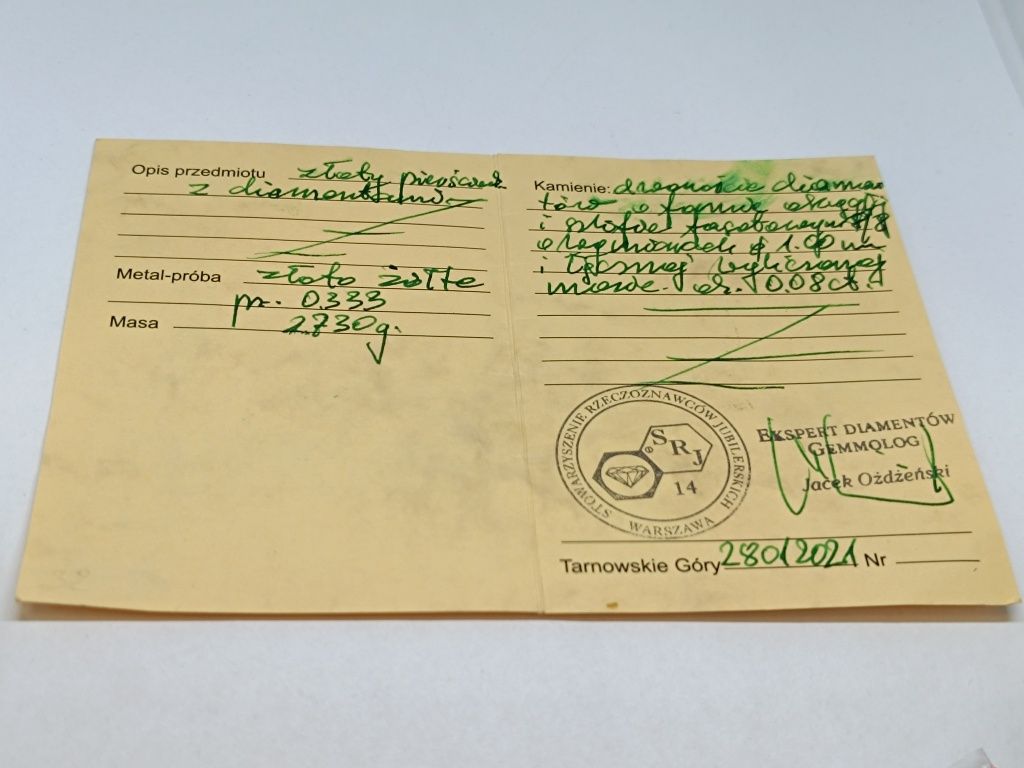 Opis przedmiotu złoty pierścionek
z diamentami
Metal-próba złoto żółte
pr. 0.333
Masa 2.730g.
Kamienie: diamen
tów o formie okrągłej
i szlifie 8/8
o 1.00 mm
i łącznej wyliczonej
masie ok. 0.08ct.
STOWARZYSZENIE RZECZOZNAWCÓW JUBILERSKICH
WARSZAWA
SRJ
14
EKSPERT DIAMENTÓW
GEMMOLOG
Jacek Ożdżeński
Tarnowskie Góry 28012021 Nr